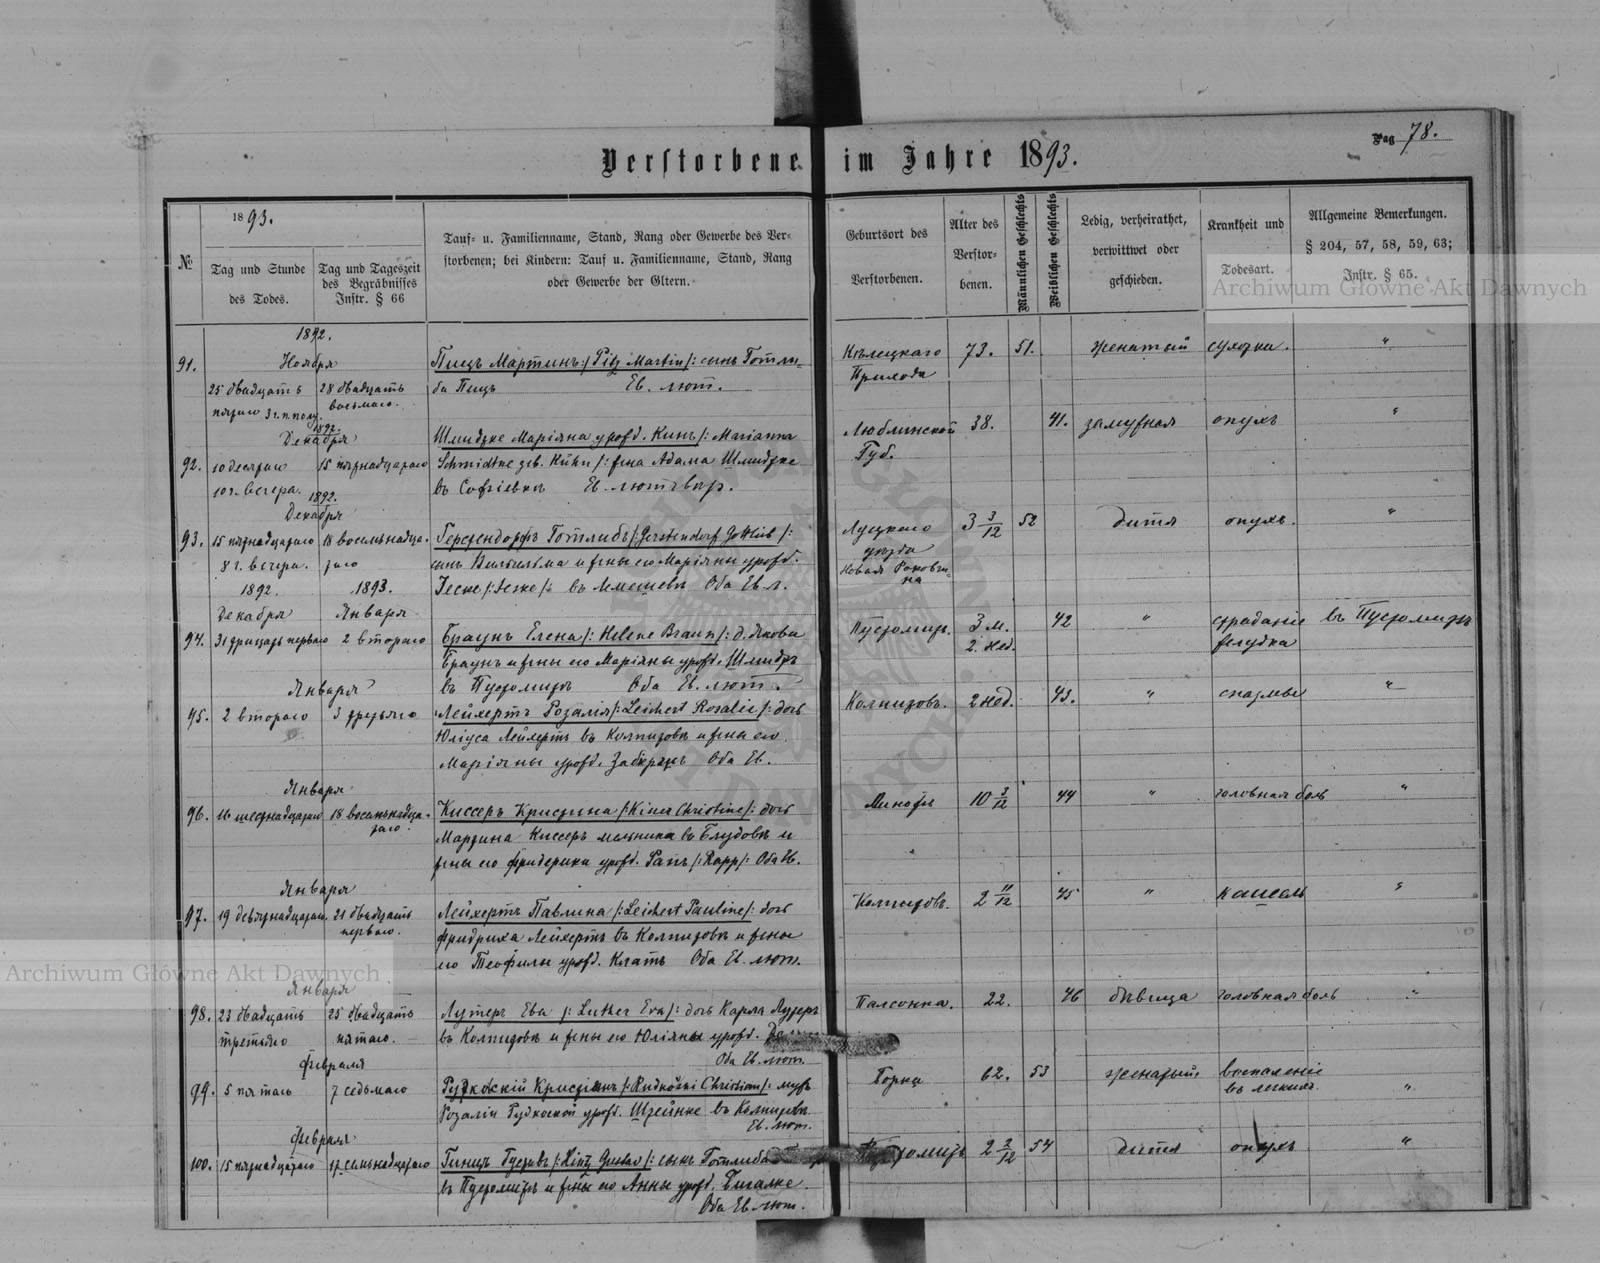 Pag 78.
Verstorbene im Jahre 1893.
№
1893.
Tag und Stunde
des Todes.
Tag und Tageszeit
des Begräbnisses
Instr. § 66
Tauf- u. Familienname, Stand, Rang oder Gewerbe des Ver-
storbenen; bei Kindern: Tauf u. Familienname, Stand, Rang
oder Gewerbe der Eltern.
Geburtsort des
Verstorbenen.
Alter des
Verstor-
benen.
Männlichen Geschlechts
Weiblichen Geschlechts
Ledig, verheirathet,
verwittwet oder
geschieden.
Krankheit und
Todesart.
Allgemeine Bemerkungen.
§ 204, 57, 58, 59, 63;
Instr. § 65.
Archiwum Główne Akt Dawnych
1892.
Ноября
91.
25 двадцать
пятаго 3 ч. п. полу.
28 двадцать
восьмаго.
Пицъ Мартинъ /: Pitz Martin /: сынъ Готли-
ба Пицъ Ев. лют.
Прихода
73.
51.
женатый
сухотка.
"
1892.
Декабря
92.
10 десятаго
10 ч. вечера.
15 пятнадцатаго
Шмидтке Маріяна урожд. Кинъ /: Marianna
Schmidtke geb. Kühn /: жена Адама Шмидтке
въ Софіевкѣ Ев. лют.
Люблинской
Губ.
38.
41.
замужная
опухъ
"
1892.
Декабря
93.
15 пятнадцатаго
8 ч. вечера.
18 восемьнадца-
таго
Герстендорфъ Готлибъ /: Gerstendorf Gottlieb /:
сынъ Вильгельма и жены его Маріяны урожд.
Іеске /: Jeske /: въ Оба Ев. л.
Луцкаго
уѣзда
Новая
3 3/12
52
дитя
опухъ.
"
1892.
Декабря
1893.
Января
94.
31 тридцать перваго
2 втораго
Браунъ Елена /: Helene Braun /: д. Якова
Браунъ и жены его Маріяны урожд. Шмидтъ
въ Пустомитѣ Оба Ев. лют.
3 м.
2 нед.
42
"
страданіе
желудка
въ Пустомитѣ
Января
95.
2 втораго
3 третьяго
Лейхертъ Розалія /: Leichert Rosalie /: дочь
Юліуса Лейхертъ въ Колпитовѣ и жены его
Маріяны урожд. Оба Ев.
Колпитовъ.
2 нед.
43.
"
спазмы
"
Января
96.
16 шестнадцатаго
18 восемьнадца-
таго.
Киссеръ Кристина /: Christine /: дочь
Мартина Киссеръ мельника въ Блудовѣ и
жены его Фридерики урожд. Рапъ /: Rapp /: Оба Ев.
10 3/12
44
"
головная боль
"
Января
97.
19 девятнадцатаго.
21 двадцать
перваго.
Лейхертъ Павлина /: Leichert Pauline /: дочь
Фридриха Лейхертъ въ Колпитовѣ и жены
его Теофилы урожд. Оба Ев. лют.
Колпитовъ.
2 11/12
45
"
кашель
"
Archiwum Główne Akt Dawnych
Января
98.
23 двадцать
третьяго
25 двадцать
пятаго.
Лутеръ Ева /: Luther Eva /: дочь Карла Лутеръ
въ Колпитовѣ и жены его Юліяны урожд.
Оба Ев. лют.
22.
46
дѣвица
головная боль
"
Февраля
99.
5 пятаго
7 седьмаго
Рудковскій Кристіянъ /: Rudkowski Christian /: мужъ
Розаліи урожд. Штейнке въ Колпитовѣ.
Ев. лют.
Горка
62.
53
женатый.
воспаленіе
въ легкихъ.
"
Февраля
100.
15 пятнадцатаго
17 семьнадцатаго
Гинцъ Густавъ /: Hintz Gustav /: сынъ Готлиба
въ Пустомитѣ и жены его Анны урожд.
Оба Ев. лют.
2 2/12
54
дитя
опухъ
"